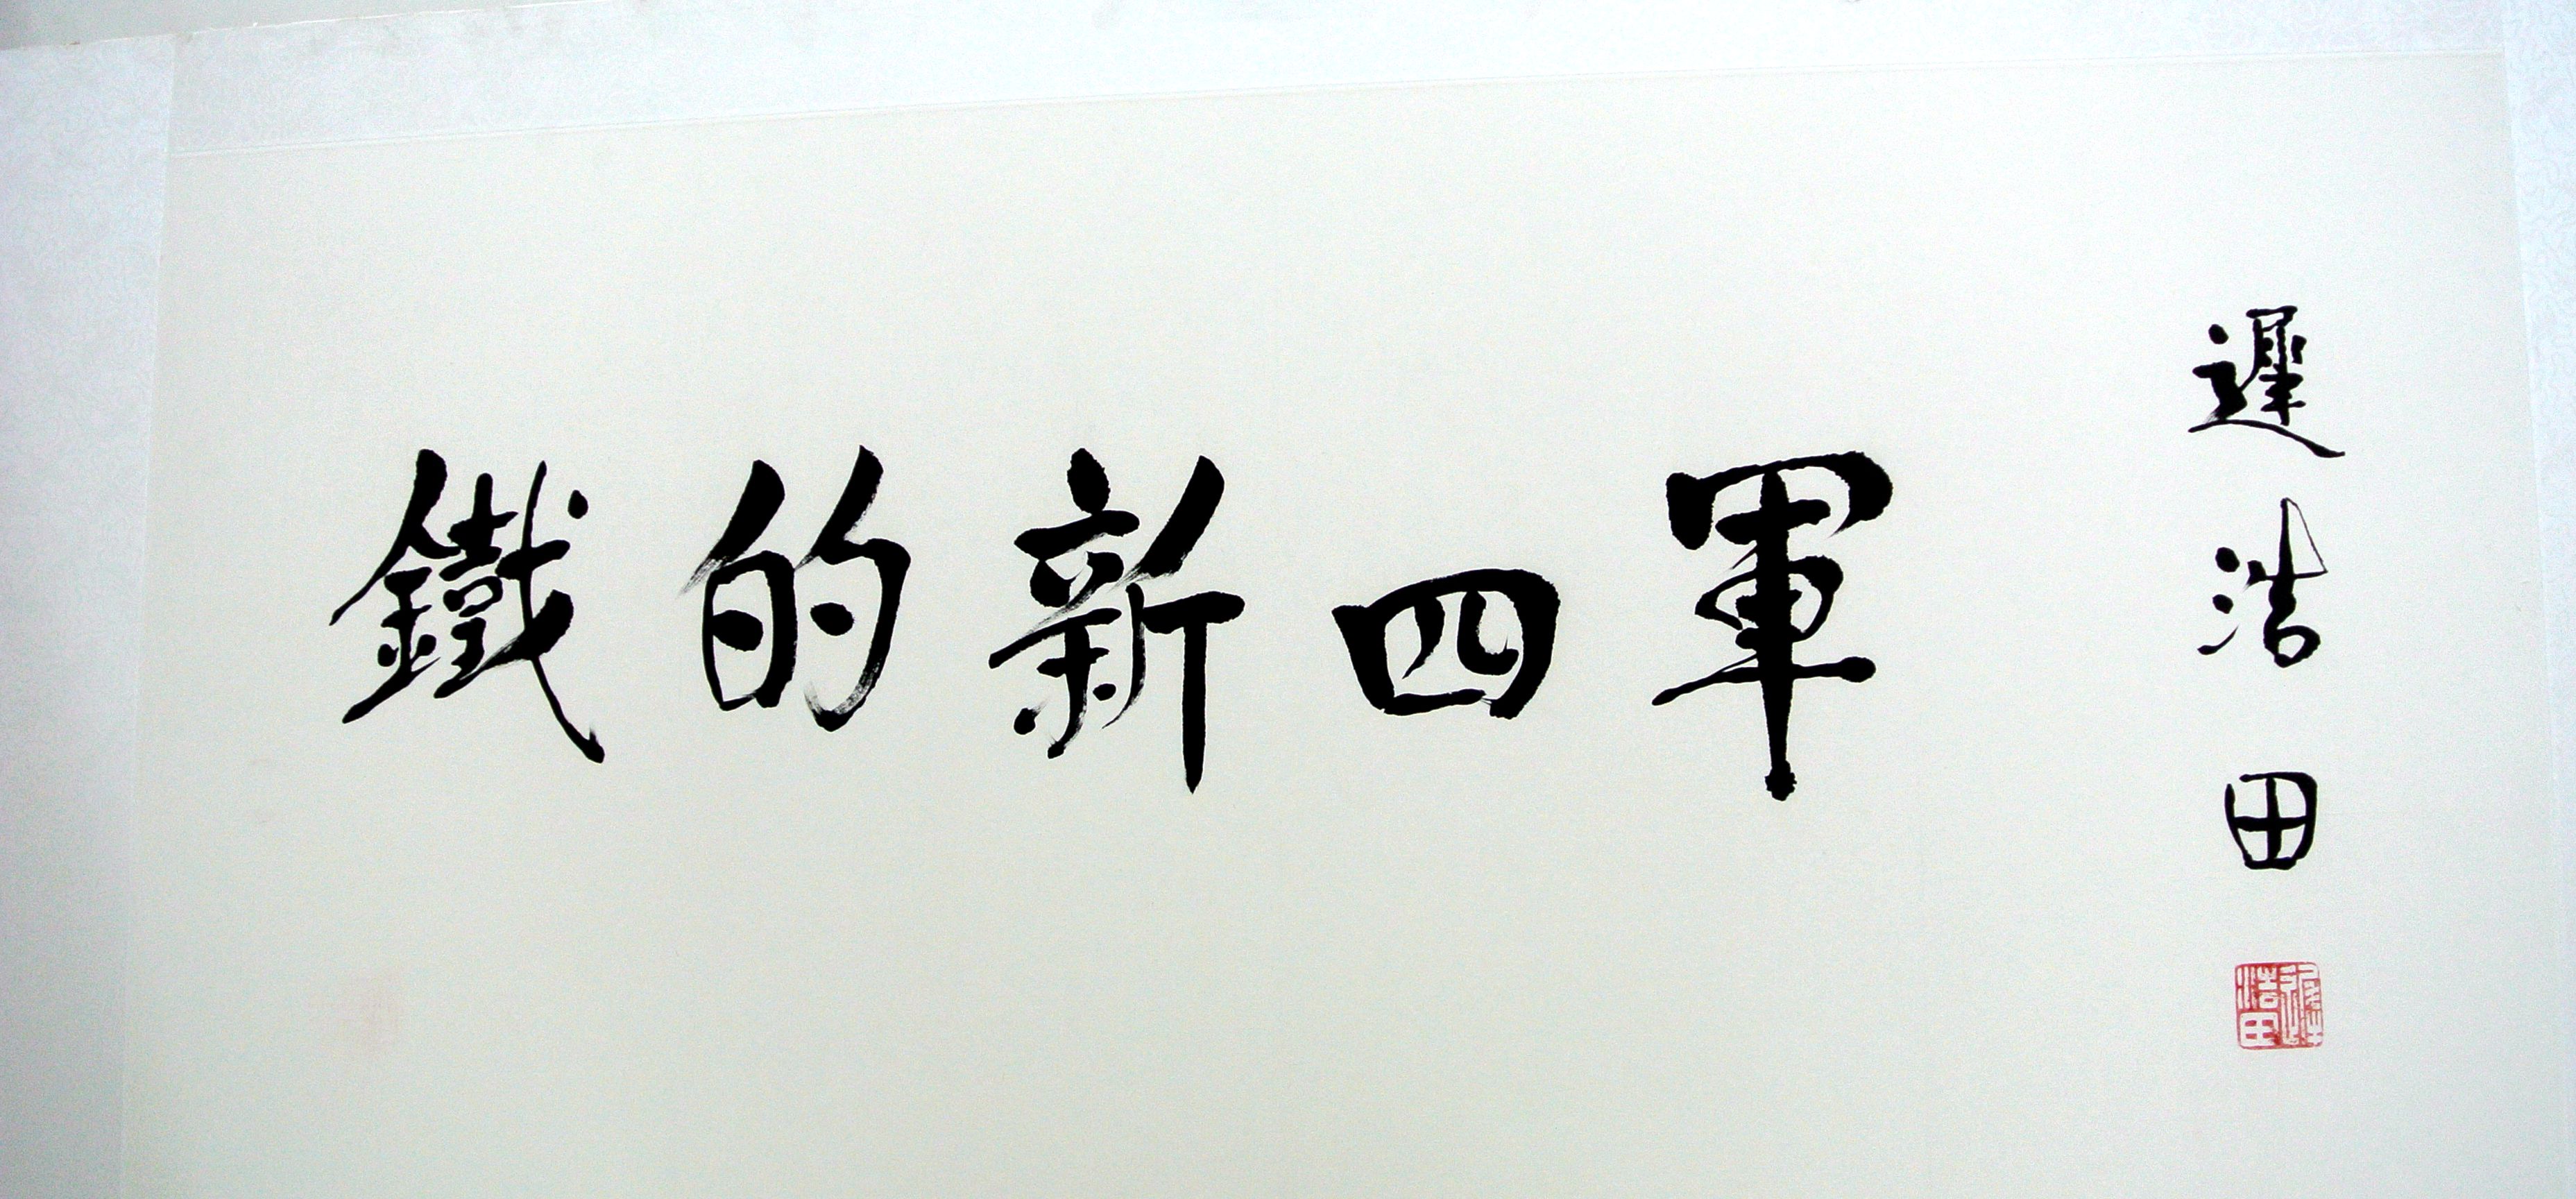 鐵的新四軍
遲浩田
遲浩田